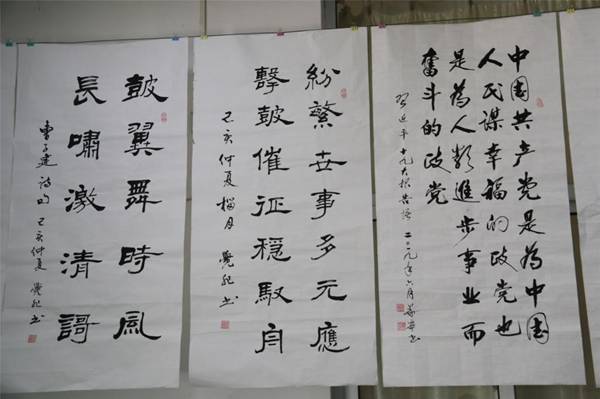 中国共产党是為中国
人民谋幸福的政党也
是為人類進步事业而
奋斗的政党
习近平十九大报告语 二〇一九年六月 书
紛繁世事多元應
擊皷催征穩馭舟
己亥仲夏榴月 覺 书
皷翼舞時風
長嘯激清謌
曹子建诗句 己亥仲夏 覺 书